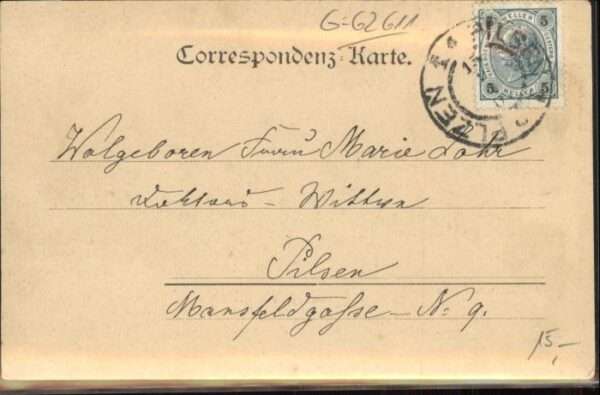 G-62611
Correspondenz-Karte.
5 HELLER 5
PILSEN
PLZEŇ 1
Wolgeboren Frau Marie Lohr
Doktors- Wittwe
Pilsen
Mansfeldgasse- No 9.
15,-